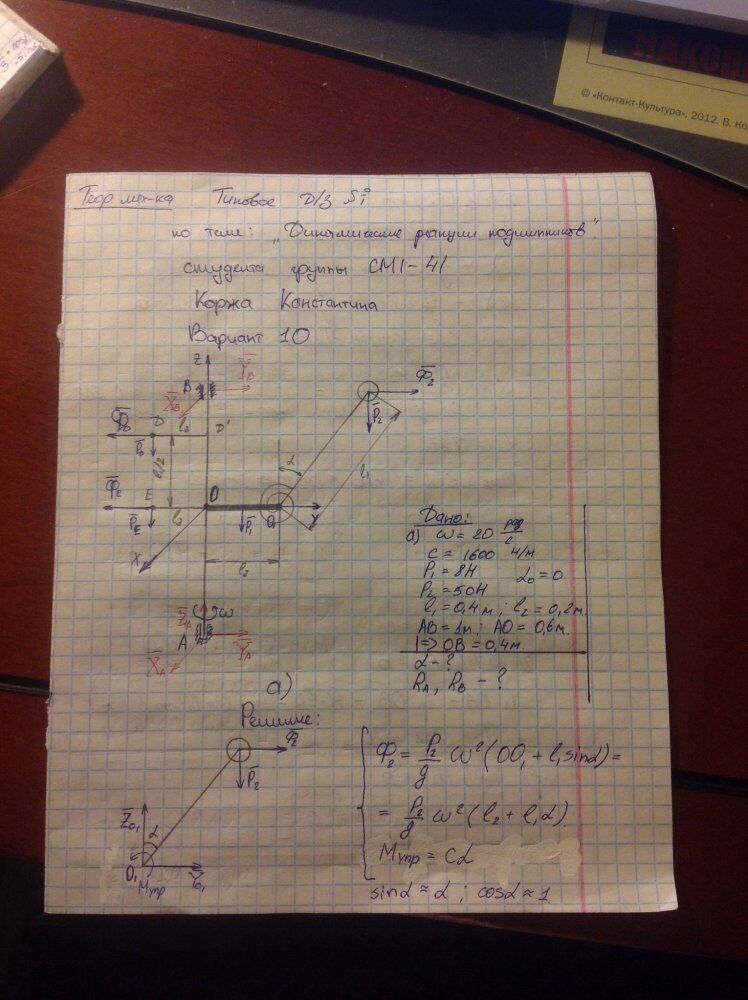 НАКОП
© «Контакт-Культура», 2012. В. Ко
Теор мех-ка Типовое D/З №1
по теме: „Динамические реакции подшипников".
студента группы СМ1-41
Коржа Константина
Вариант 10
Z
B
Y̅B
X̅B
Φ̅2
P̅2
Φ̅D
D
l2
D'
P̅D
l1/2
α
l1
Φ̅E
E
l2
O
O1
Y
P̅E
P̅1
X
l2
Z̅A
ω
A
Y̅A
X̅A
Дано:
а) ω = 20 рад/с
c = 1600 Н/м
P1 = 8Н α0 = 0
P2 = 50Н
l1 = 0,4м ; l2 = 0,2м.
AB = 1м ; AO = 0,6м.
|=> OB = 0,4м.
α - ?
RA, RB - ?
а)
Решение:
Φ̅2
P̅2
Z̅O1
α
O1
Mупр
Y̅O1
Φ2 = P2/g ω²(OO1 + l1 sinα) =
= P2/g ω²(l2 + l1α)
Mупр = cα
sinα ≈ α ; cosα ≈ 1